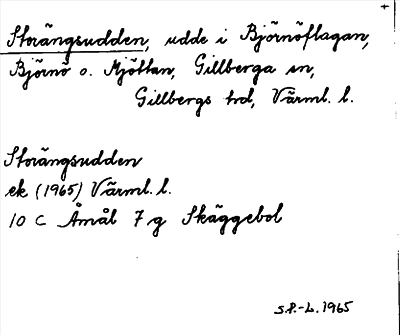 Storängsudden, udde i Björnöflagan,
Björnö o. Mjöttan, Gillberga sn,
Gillbergs hd, Värml. l.
Storängsudden
ek (1965) Värml. l.
10 C Åmål 7 g Skäggebol
S.P.-L. 1965